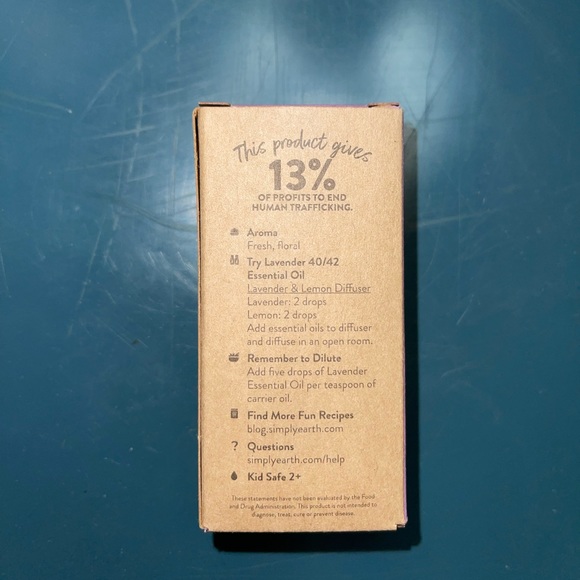 This product gives
13%
OF PROFITS TO END
HUMAN TRAFFICKING.
Aroma
Fresh, floral
Try Lavender 40/42
Essential Oil
Lavender & Lemon Diffuser
Lavender: 2 drops
Lemon: 2 drops
Add essential oils to diffuser
and diffuse in an open room.
Remember to Dilute
Add five drops of Lavender
Essential Oil per teaspoon of
carrier oil.
Find More Fun Recipes
blog.simplyearth.com
? Questions
simplyearth.com/help
Kid Safe 2+
These statements have not been evaluated by the Food
and Drug Administration. This product is not intended to
diagnose, treat, cure or prevent disease.